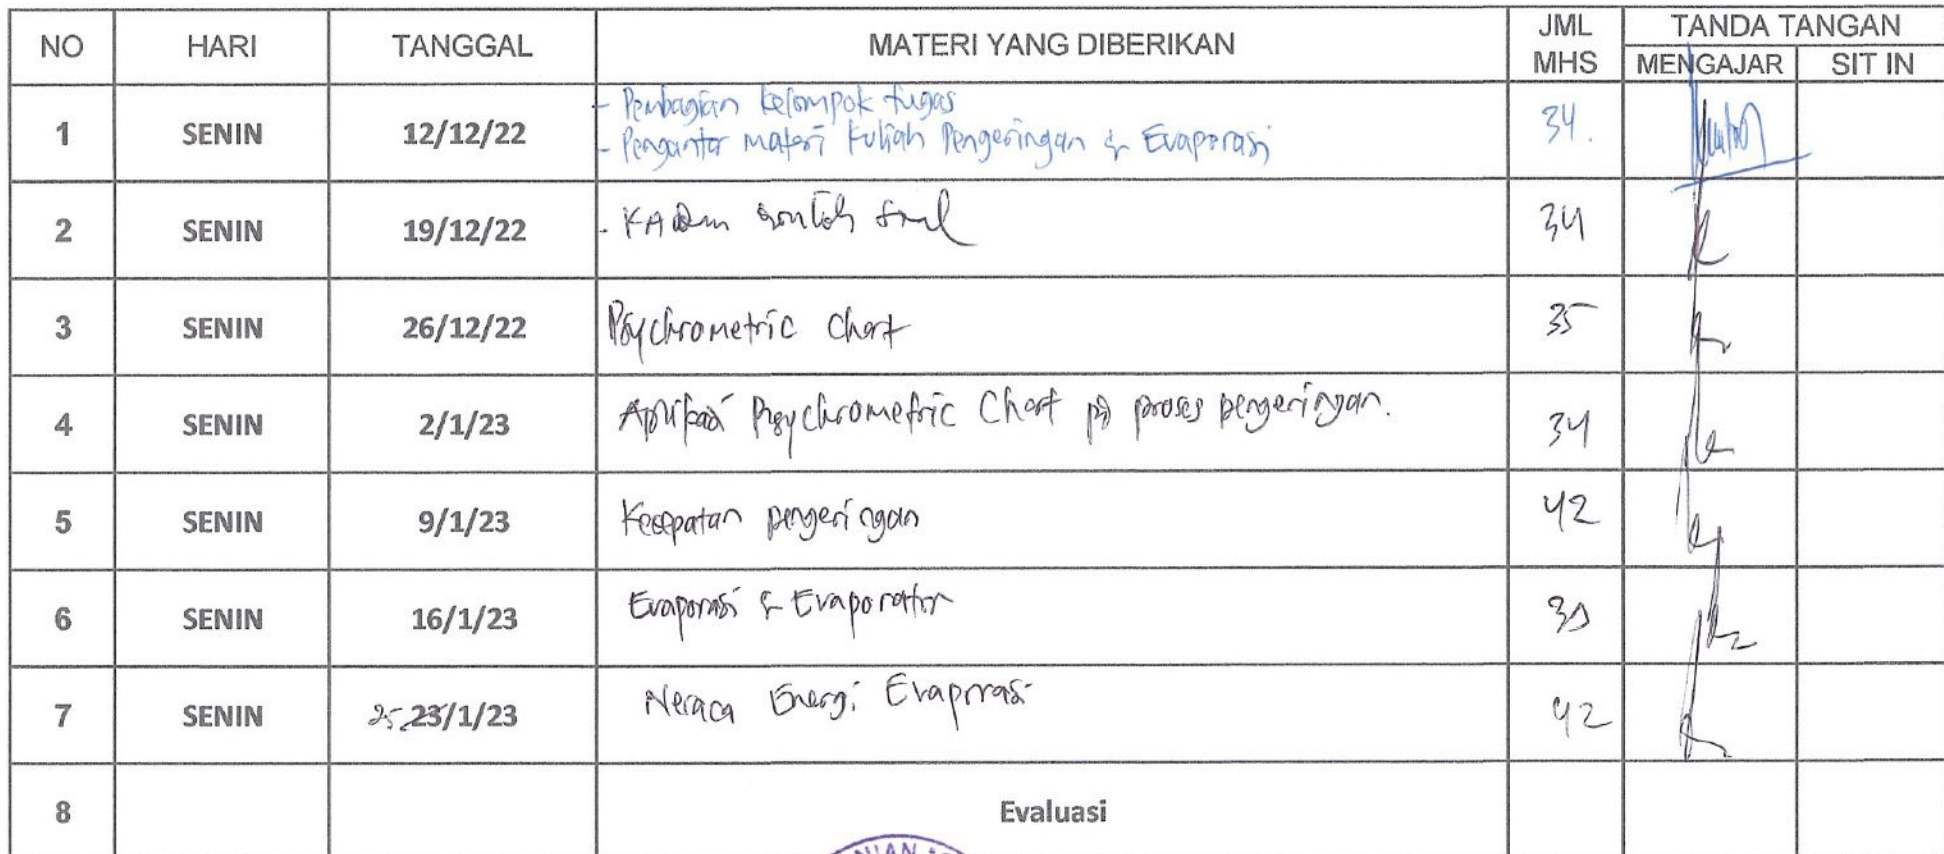 NO HARI TANGGAL MATERI YANG DIBERIKAN JML MHS TANDA TANGAN
MENGAJAR SIT IN
1 SENIN 12/12/22 - Pembagian kelompok tugas 34.
- Pengantar materi kuliah Pengeringan & Evaporasi
2 SENIN 19/12/22 - contoh soal 34
3 SENIN 26/12/22 Psychrometric Chart 35
4 SENIN 2/1/23 Aplikasi Psychrometric Chart pd proses pengeringan. 34
5 SENIN 9/1/23 Kecepatan pengeringan 42
6 SENIN 16/1/23 Evaporasi & Evaporator
7 SENIN 25 23/1/23 Neraca Energi Evaporasi 42
8 Evaluasi